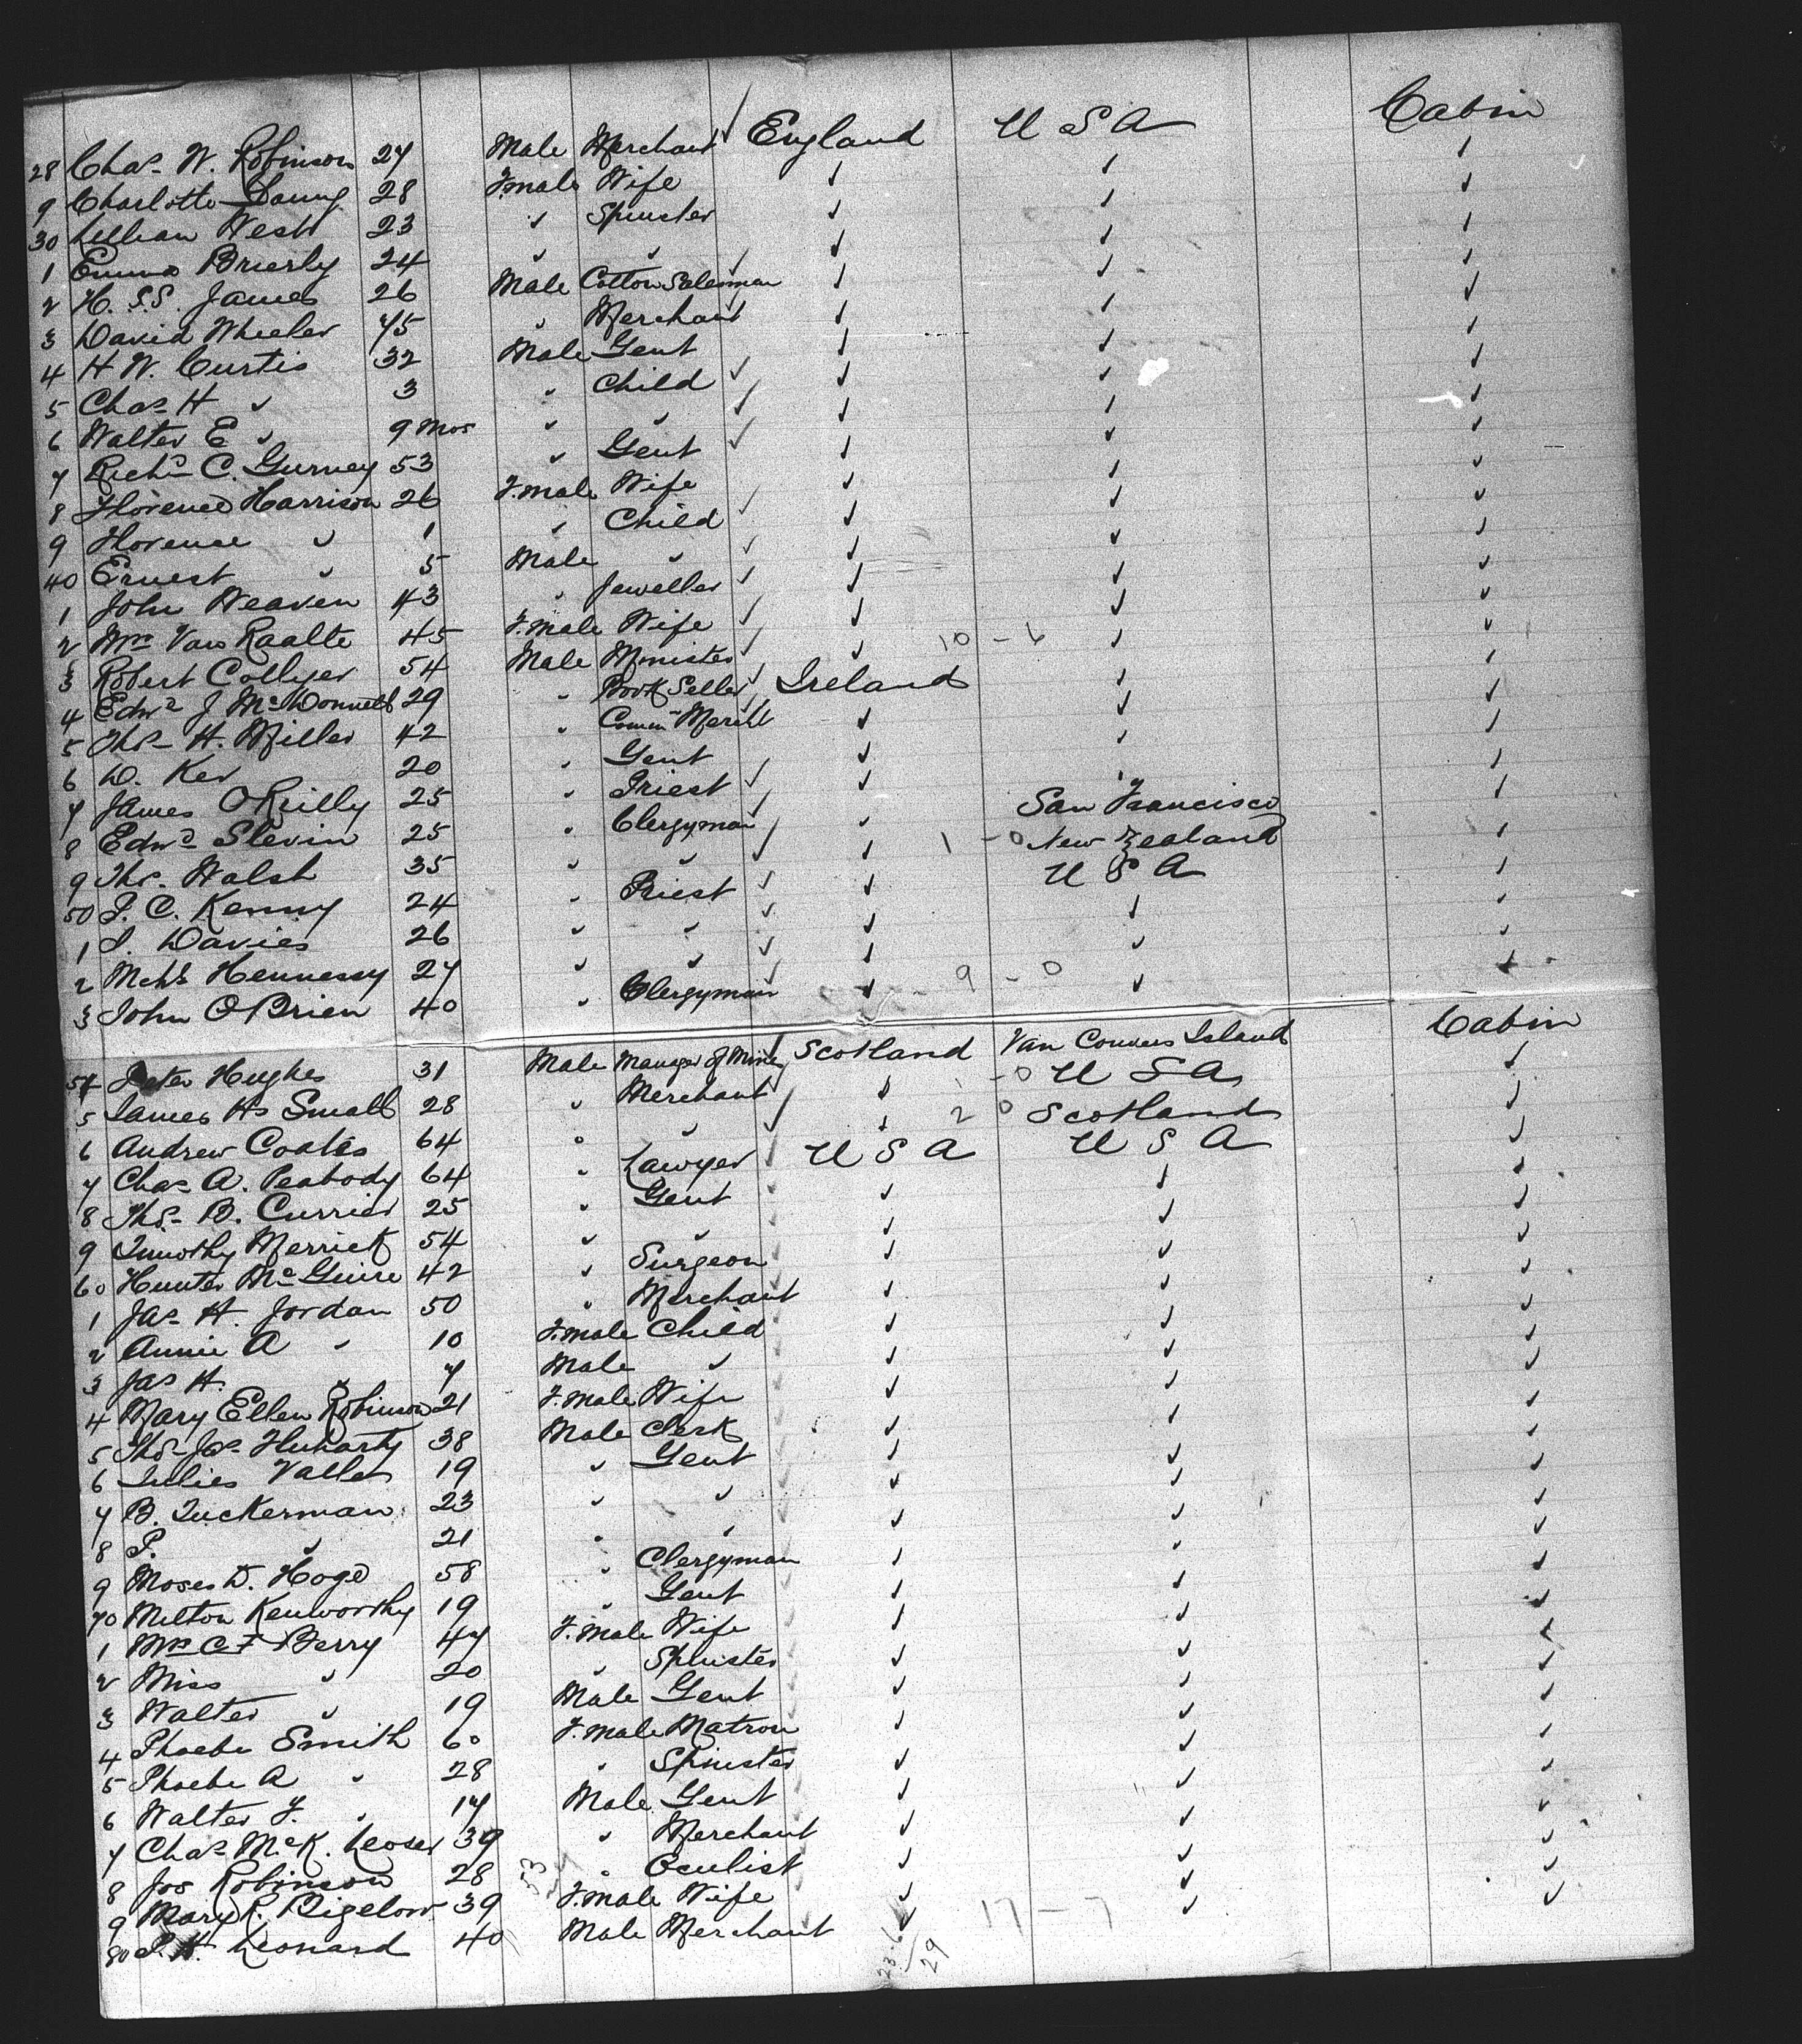 28 Chas. W. Robinson 27 Male Merchant ✓ England U S A Cabin
9 Charlotte Young 28 F.male Wife ✓ ✓ ✓
30 Lillian West 23 " Spinster ✓ ✓ ✓
1 Emma Brierly 24 " " ✓ ✓ ✓
2 H. S.S. James 26 Male Cotton Salesman ✓ ✓ ✓
3 David Wheeler 45 " Merchant ✓ ✓ ✓
4 H W. Curtis 32 Male Gent ✓ ✓ ✓
5 Chas H " 3 " Child ✓ ✓ ✓
6 Walter E " 9 Mos " " ✓ ✓ ✓
7 Richd C. Gurney 53 " Gent ✓ ✓ ✓
8 Florence Harrison 26 F.male Wife ✓ ✓ ✓
9 Florence " 1 " Child ✓ ✓ ✓
40 Ernest " 5 Male " ✓ ✓ ✓
1 John Weaven 43 " Jeweller ✓ ✓ ✓
2 Mrs Van Raalte 45 F.male Wife ✓ ✓ ✓
3 Robert Collyer 54 Male Minister ✓ 10 - 6 ✓ ✓
4 Edwd J McDonnell 29 " Book Seller Ireland ✓ ✓
5 Thos H. Miller 42 " Comn Mercht ✓ ✓ ✓
6 D. Ker 20 " Gent ✓ ✓ ✓
7 James O'Reilly 25 " Priest ✓ ✓ ✓
8 Edwd Slevin 25 " Clergyman ✓ San Francisco ✓
9 Thos. Walsh 35 " " ✓ 1 - 0 New Zealand ✓
50 P. C. Kenny 24 " Priest ✓ U S A ✓
1 J. Davies 26 " " ✓ ✓ ✓
2 Mchl Hennessy 27 " " ✓ ✓ ✓
3 John O'Brien 40 " Clergyman ✓ 9 - 0 ✓ ✓
54 Peter Hughes 31 Male Manager of Mines Scotland Van Couvers Island Cabin
5 James Hs Small 28 " Merchant ✓ 1 - 0 U S A ✓
6 Andrew Coates 64 " " ✓ 2 0 Scotland ✓
7 Chas A. Peabody 64 " Lawyer U S A U S A ✓
8 Thos B. Currier 25 " Gent ✓ ✓ ✓
9 Timothy Merrick 54 " " ✓ ✓ ✓
60 Hunter McGuire 42 " Surgeon ✓ ✓ ✓
1 Jas H. Jordan 50 " Merchant ✓ ✓ ✓
2 Annie A " 10 F.male Child ✓ ✓ ✓
3 Jas H. " 7 Male " ✓ ✓ ✓
4 Mary Ellen Robinson 21 F.male Wife ✓ ✓ ✓
5 Thos Jos 38 Male Clerk ✓ ✓ ✓
6 Julies Valle 19 " Gent ✓ ✓ ✓
7 B. Tuckerman 23 " " ✓ ✓ ✓
8 P. " 21 " " ✓ ✓ ✓
9 Moses D. Hoge 58 " Clergyman ✓ ✓ ✓
70 Milton Kenworthy 19 " Gent ✓ ✓ ✓
1 Mrs C F Berry 47 F.male Wife ✓ ✓ ✓
2 Miss " 20 " Spinster ✓ ✓ ✓
3 Walter " 19 Male Gent ✓ ✓ ✓
4 Phoebe Smith 60 F.male Matron ✓ ✓ ✓
5 Phoebe A " 28 " Spinster ✓ ✓ ✓
6 Walter F. " 17 Male Gent ✓ ✓ ✓
7 Chas McK. Leoser 39 " Merchant ✓ ✓ ✓
8 Jos Robinson 28 " Oculist ✓ ✓ ✓
9 Mary R. Bigelow 39 F.male Wife ✓ ✓ ✓
80 J. H. Leonard 40 Male Merchant ✓ 17 - 7 ✓ ✓
53
23.6/29